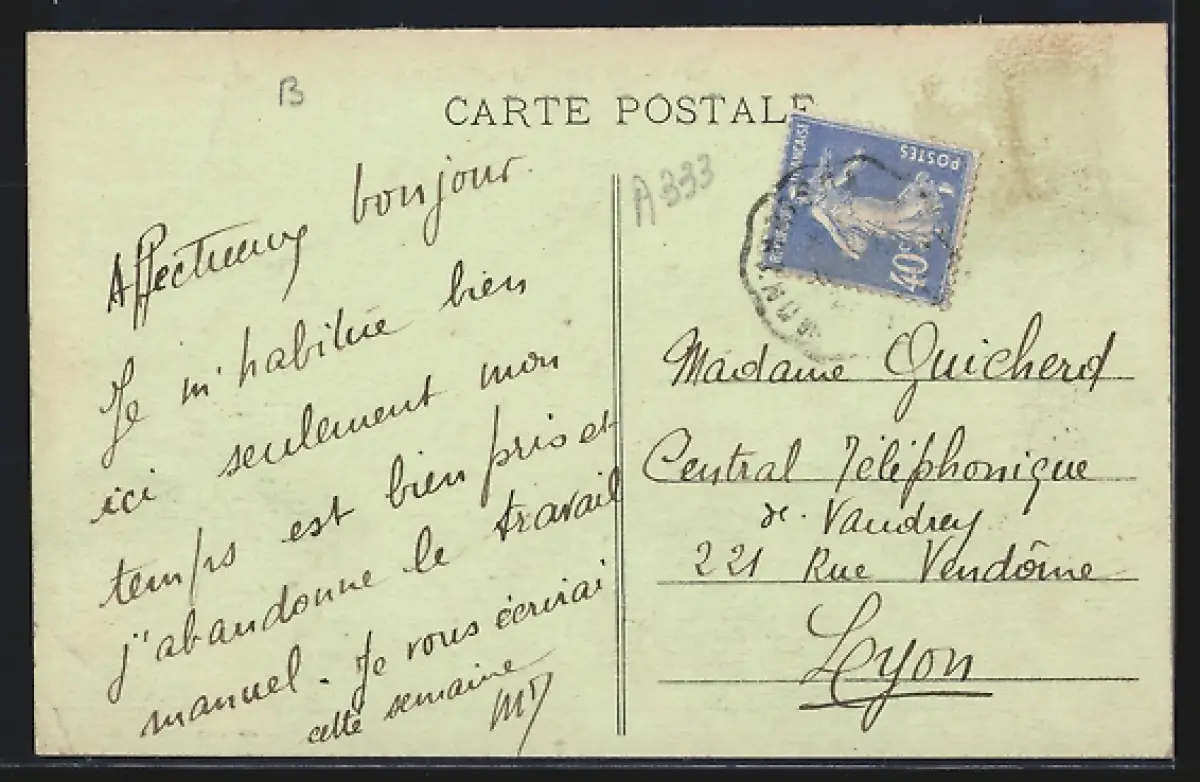 B
CARTE POSTALE
A 333
POSTES
FRANÇAISE
40c
Affectueux bonjour.
Je m'habitue bien
ici seulement mon
temps est bien pris et
j'abandonne le travail
manuel. Je vous écrirai
cette semaine
Madame Guicherd
Central Téléphonique
de Vaudrey
221 Rue Vendôme
Lyon